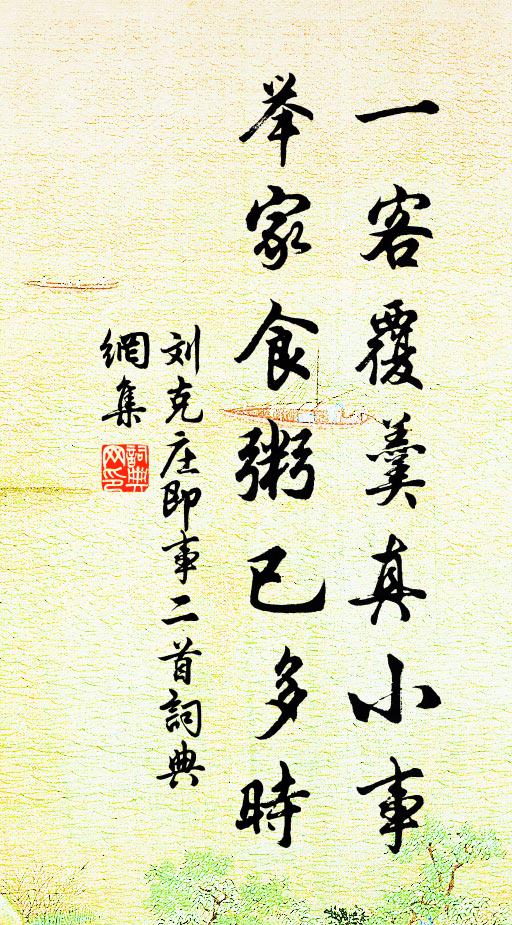 一客覆羹真小事
举家食粥已多时
刘克庄即事二首詞典
網集
詞典
网印